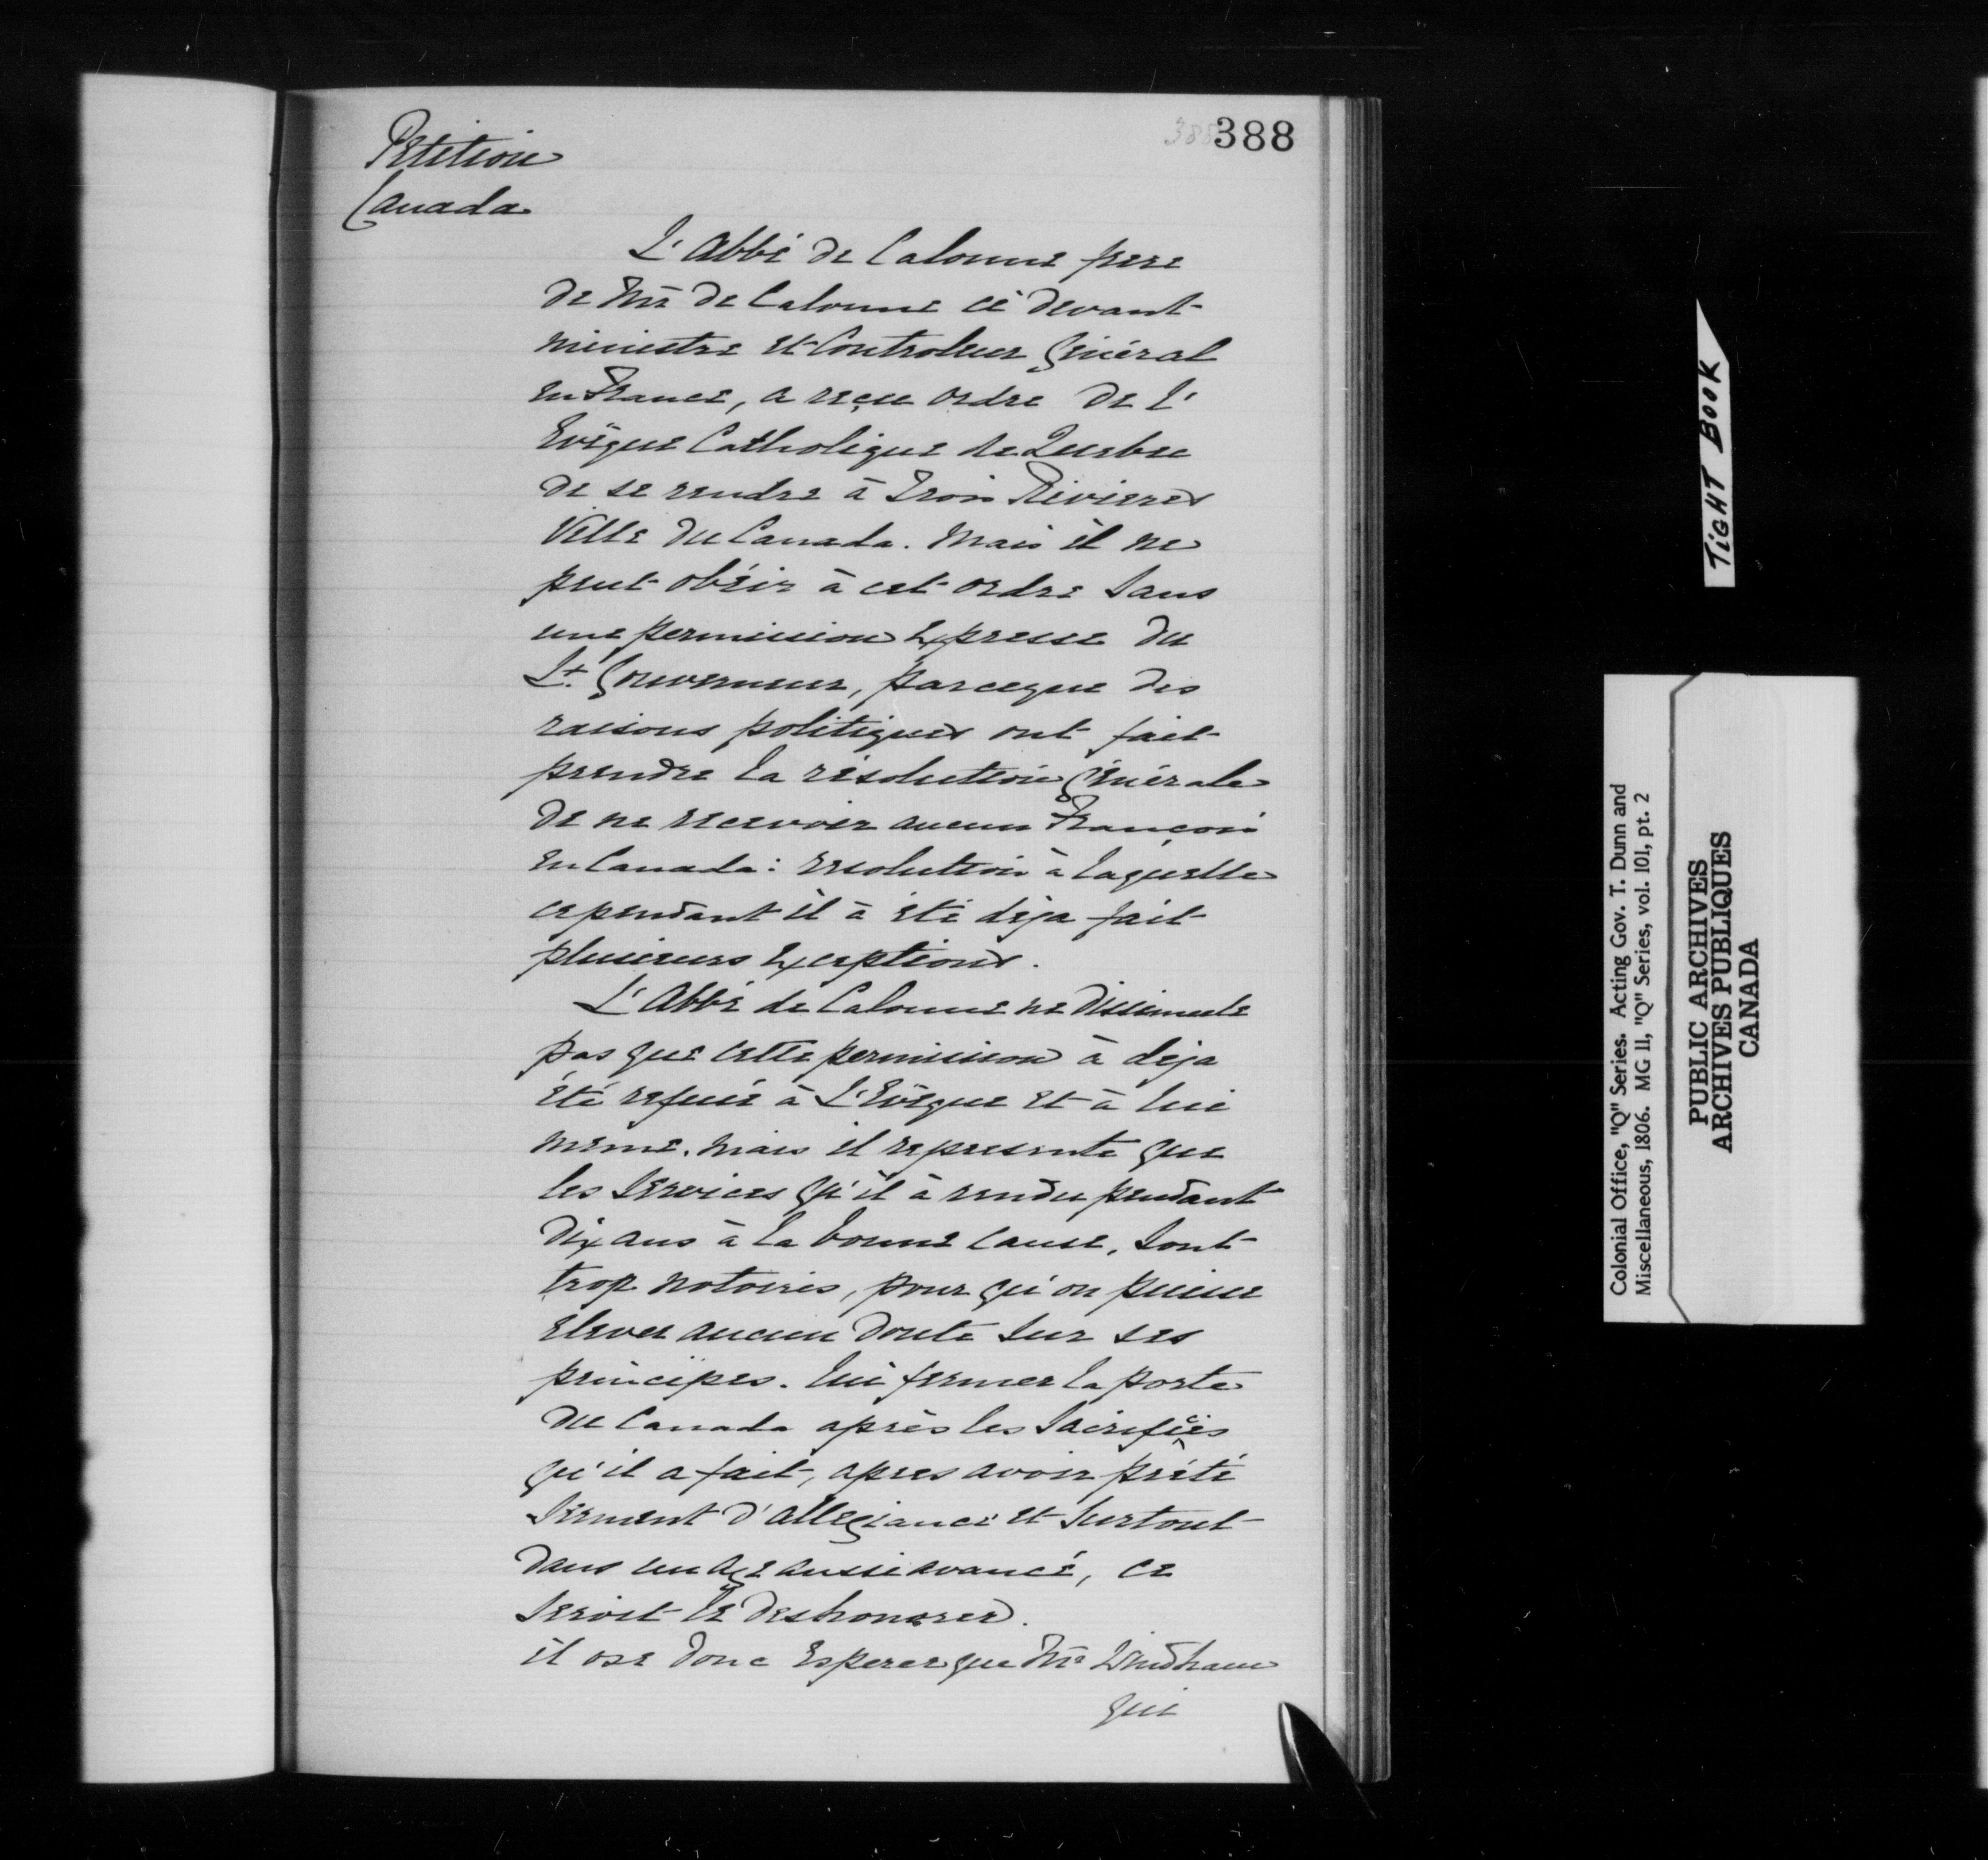 388 388
Petition
Canada
L'Abbé de Calonne frere
de Mr de Calonne ci devant
ministre et Controleur Général
en France, a reçu ordre de l'
Evêque Catholique de Quebec
de se rendre à Trois Rivieres
Ville du Canada. Mais il ne
peut obéir à cet ordre sans
une permission Expresse du
Lt. Gouverneur, parceque des
raisons politiques ont fait
prendre la résolution Générale
de ne recevoir aucun François
en Canada: resolution à laquelle
cependant il à été déja fait
plusieurs Exceptions.
L'Abbé de Calonne ne dissimule
pas que cette permission à deja
été refusé à L'Evêque et à lui
meme. mais il represente que
les Services qu'il à rendu pendant
dix ans à la bonne Cause, sont
trop notoires, pour qu'on puisse
elever aucun doute sur ses
principes. lui fermer la porte
du Canada après les Sacrifices
qu'il a fait, apres avoir prêté
Serment d'allegiance et Surtout
dans un age aussi avancé, ce
Seroit le deshonorer.
il ose donc Esperer que Mr Windham
qui
TIGHT BOOK
Colonial Office, "Q" Series. Acting Gov. T. Dunn and
Miscellaneous, 1806. MG 11, "Q" Series, vol. 101, pt. 2
PUBLIC ARCHIVES
ARCHIVES PUBLIQUES
CANADA